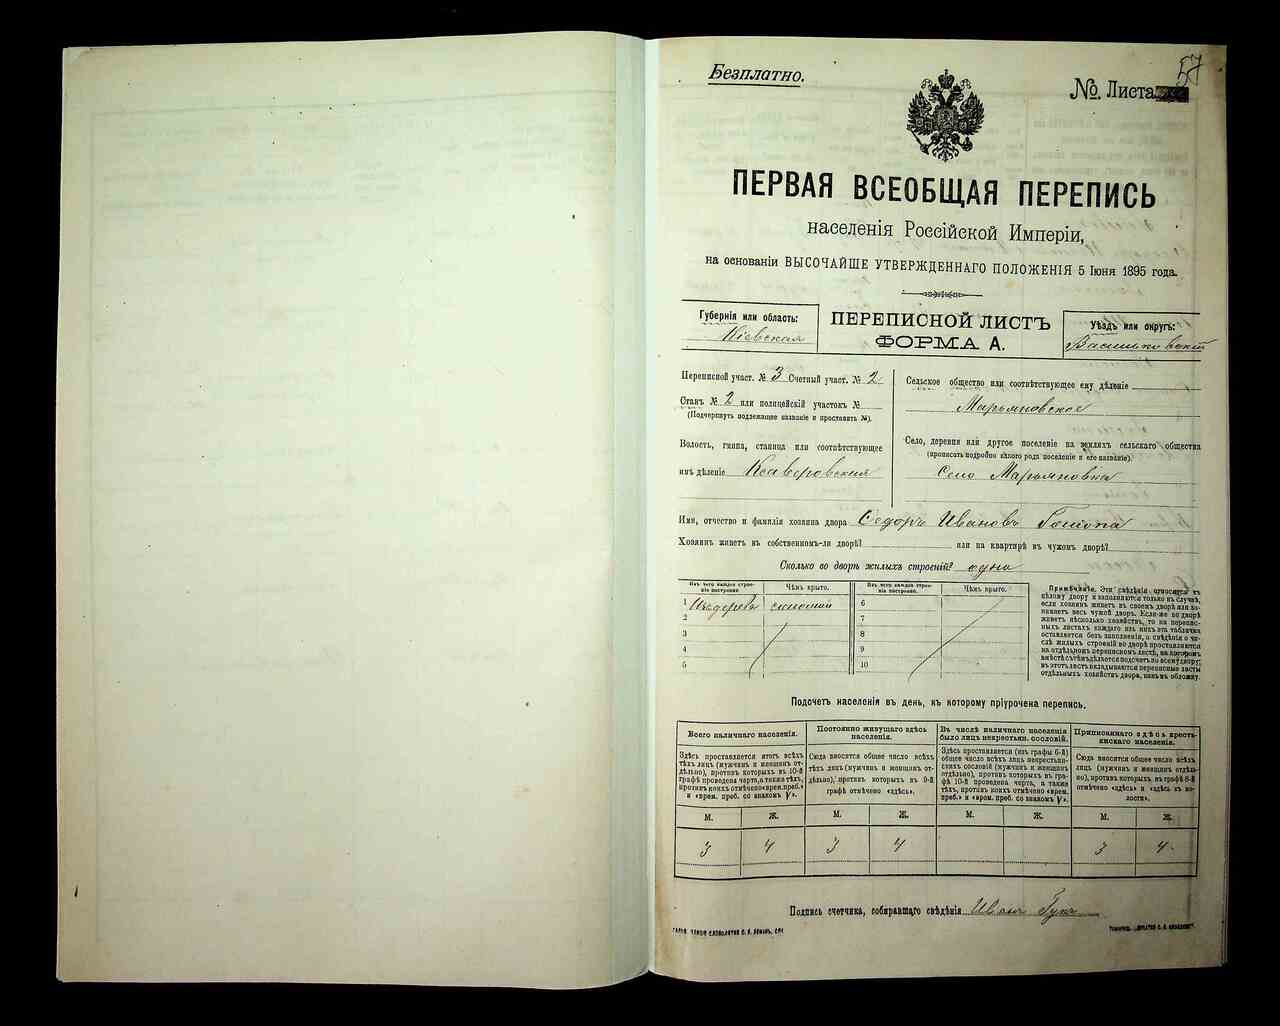 57
Безплатно.
№. Листа
ПЕРВАЯ ВСЕОБЩАЯ ПЕРЕПИСЬ
населенія Россійской Имперіи,
на основаніи ВЫСОЧАЙШЕ УТВЕРЖДЕННАГО ПОЛОЖЕНІЯ 5 Іюня 1895 года.
Губернія или область:
Кіевская
ПЕРЕПИСНОЙ ЛИСТЪ
ФОРМА А.
Уѣздъ или округъ:
Васильковскій
Переписной участ. № 3 Счетный участ. № 2
Станъ № 2 или полицейскій участокъ №
(Подчеркнуть подлежащее названіе и проставить №).
Волость, гмина, станица или соотвѣтствующее
имъ дѣленіе Ксаверовская
Сельское общество или соотвѣтствующее ему дѣленіе
Марьяновское
Село, деревня или другое поселеніе на земляхъ сельскаго общества
(прописать подробно какого рода поселеніе и его названіе).
Село Марьяновка
Имя, отчество и фамилія хозяина двора Ѳедоръ Ивановъ
Хозяинъ живетъ въ собственномъ-ли дворѣ? или на квартирѣ въ чужомъ дворѣ?
Сколько во дворѣ жилыхъ строеній? одно
Изъ чего каждое строе-
ніе построено.
Чѣмъ крыто.
Изъ чего каждое строе-
ніе построено.
Чѣмъ крыто.
1 Изъ дерева соломой
2
3
4
5
6
7
8
9
10
Примѣчаніе. Эти свѣдѣнія относятся къ
цѣлому двору и заполняются только въ случаѣ,
если хозяинъ живетъ въ своемъ дворѣ или за-
нимаетъ весь чужой дворъ. Если-же во дворѣ
живетъ нѣсколько хозяйствъ, то на перепис-
ныхъ листахъ каждаго изъ нихъ эта табличка
оставляется безъ заполненія, а свѣдѣнія о чи-
слѣ жилыхъ строеній во дворѣ проставляются
на отдѣльномъ переписномъ листѣ, на которомъ
вмѣстѣ съ тѣмъ дѣлается подсчетъ по всему двору;
въ этотъ листъ вкладываются переписные листы
отдѣльныхъ хозяйствъ двора, какъ въ обложку.
Подсчетъ населенія въ день, къ которому пріурочена перепись.
Всего наличнаго населенія.
Здѣсь проставляется итогъ всѣхъ
тѣхъ лицъ (мужчинъ и женщинъ от-
дѣльно), противъ которыхъ въ 10-й
графѣ проведена черта, а также тѣхъ,
противъ коихъ отмѣчено «врем. преб.»
и «врем. преб. со знакомъ V».
Постоянно живущаго здѣсь
населенія.
Сюда вносятся общее число всѣхъ
тѣхъ лицъ (мужчинъ и женщинъ от-
дѣльно), противъ которыхъ въ 9-й
графѣ отмѣчено «здѣсь».
Въ числѣ наличнаго населенія
было лицъ некрестьян. сословій.
Здѣсь проставляется (изъ графы 6-й)
общее число всѣхъ лицъ некрестьян-
скихъ сословій (мужчинъ и женщинъ
отдѣльно), противъ которыхъ въ гра-
фѣ 10-й проведена черта, а также
тѣхъ, противъ коихъ отмѣчено «врем.
преб.» и «врем. преб. со знакомъ V».
Приписаннаго здѣсь кресть-
янскаго населенія.
Сюда вносятся общее число всѣхъ
лицъ (мужчинъ и женщинъ отдѣль-
но), противъ которыхъ въ графѣ 8-й
отмѣчено «здѣсь» и «здѣсь къ во-
лости».
М. Ж. М. Ж. М. Ж. М. Ж.
3 4 3 4 3 4
Подпись счетчика, собиравшаго свѣдѣнія Иванъ